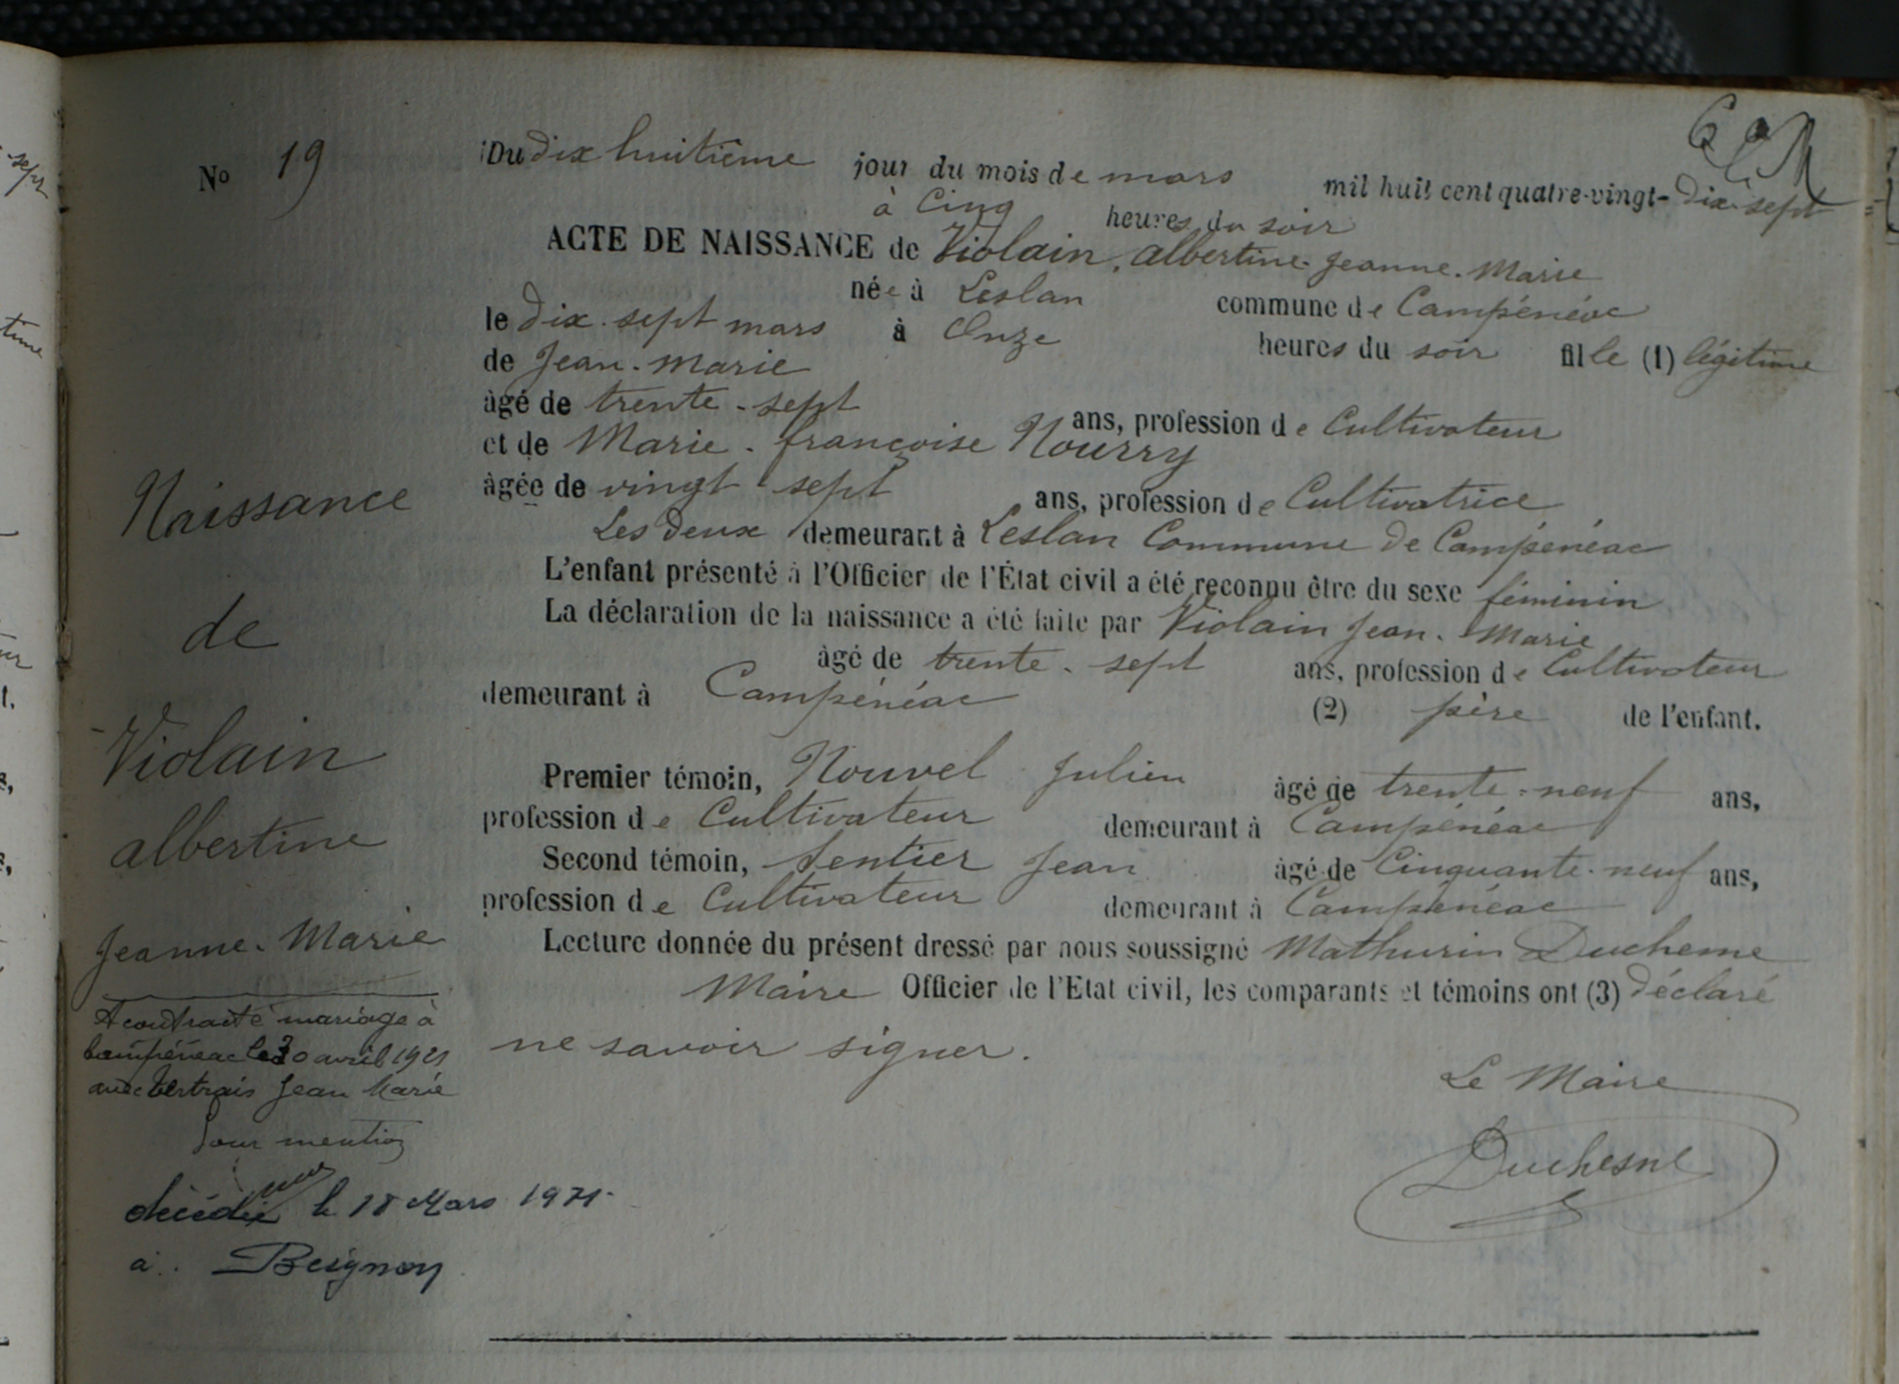 No 19
Du dix huitième jour du mois de mars mil huit cent quatre-vingt-dix-sept
à Cinq heures du soir
ACTE DE NAISSANCE de Violain, albertine Jeanne-Marie
née à Leslan commune de Campénéac
le dix-sept mars à Onze heures du soir fille (1) légitime
de Jean-Marie
âgé de trente-sept ans, profession de Cultivateur
et de Marie-françoise Nourry
âgée de vingt sept ans, profession de Cultivatrice
Les deux demeurant à Leslan Commune de Campénéac
L'enfant présenté à l'Officier de l'État civil a été reconnu être du sexe féminin
La déclaration de la naissance a été faite par Violain Jean-Marie
âgé de trente-sept ans, profession de Cultivateur
demeurant à Campénéac (2) père de l'enfant.
Premier témoin, Nouvel Julien âgé de trente-neuf ans,
profession de Cultivateur demeurant à Campénéac
Second témoin, Sentier Jean âgé de Cinquante-neuf ans,
profession de Cultivateur demeurant à Campénéac
Lecture donnée du présent dressé par nous soussigné Mathurin Duchesne
Maire Officier de l'Etat civil, les comparants et témoins ont (3) déclaré
ne savoir signer.
Le Maire
Duchesne
Naissance
de
Violain
albertine
Jeanne-Marie
A contracté mariage à
Campénéac le 30 avril 1921
avec Jean Marie
Pour mention
décédée le 18 Mars 1971
à Beignon
sept